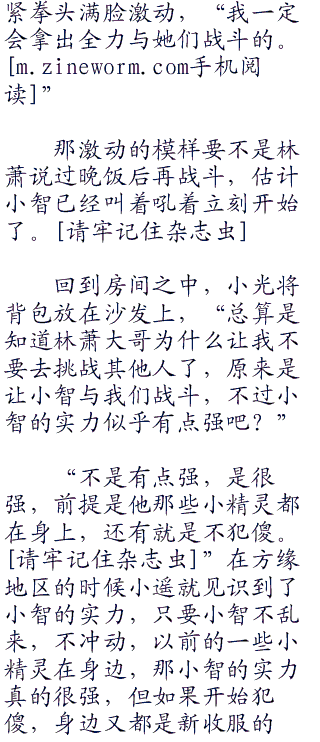 紧拳头满脸激动，“我一定
会拿出全力与她们战斗的。
[m.zineworm.com手机阅
读]”
那激动的模样要不是林
萧说过晚饭后再战斗，估计
小智已经叫着吼着立刻开始
了。[请牢记住杂志虫]
回到房间之中，小光将
背包放在沙发上，“总算是
知道林萧大哥为什么让我不
要去挑战其他人了，原来是
让小智与我们战斗，不过小
智的实力似乎有点强吧？”
“不是有点强，是很
强，前提是他那些小精灵都
在身上，还有就是不犯傻。
[请牢记住杂志虫]”在方缘
地区的时候小遥就见识到了
小智的实力，只要小智不乱
来，不冲动，以前的一些小
精灵在身边，那小智的实力
真的很强，但如果开始犯
傻，身边又都是新收服的